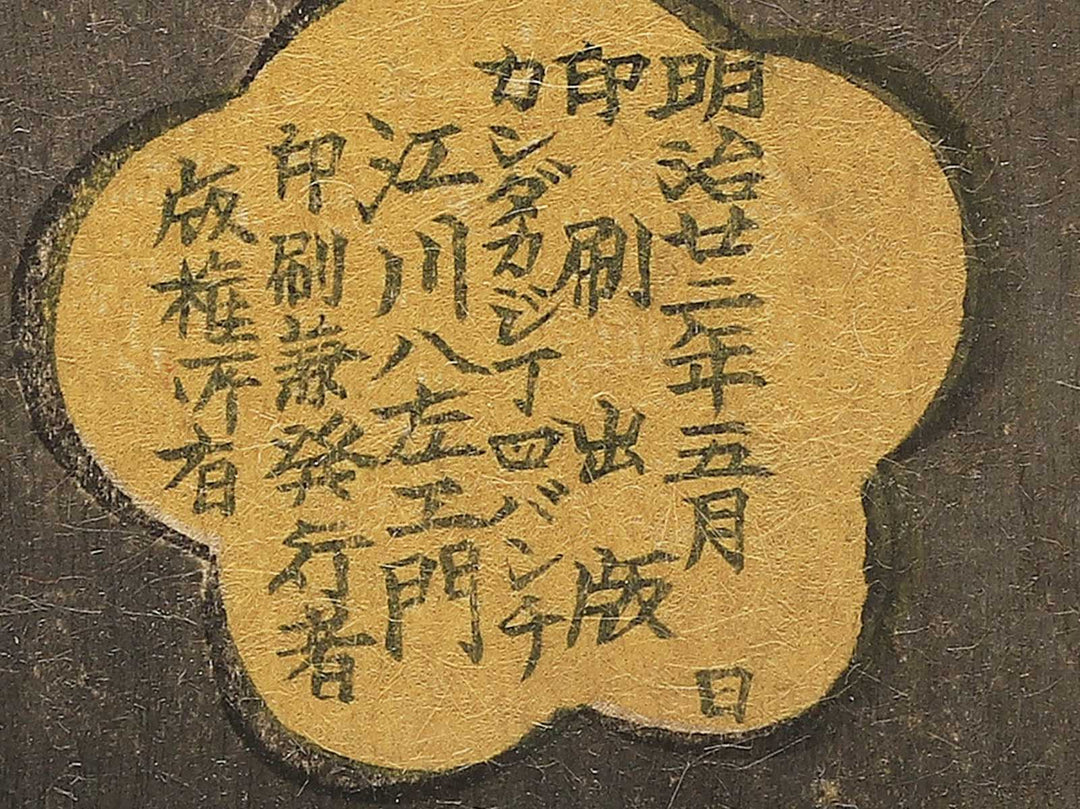 明治廿二年五月　日
印刷出版
カンダカジ丁四バンチ
江川八左エ門
印刷兼発行者
版権所有